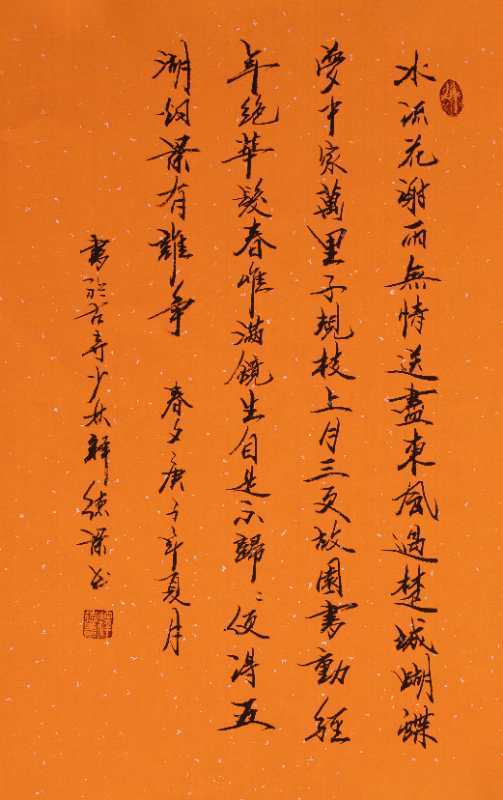 水流花謝兩無情送盡東風過楚城蝴蝶
夢中家萬里子規枝上月三更故園書動經
年絕華髮春唯滿鏡生自是不歸〻便得五
湖烟景有誰爭 春夕庚子年夏月
書於古寺少林軒德书